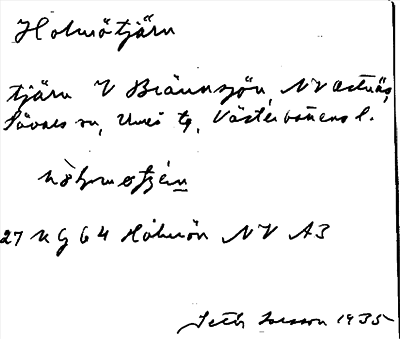 Holmötjärn
tjärn V Brännsjön, NV Östnäs,
Sävars sn, Umeå tg, Västerbottens l.
27 U g 64 Holmön NV A3
Seth Larsson 1935